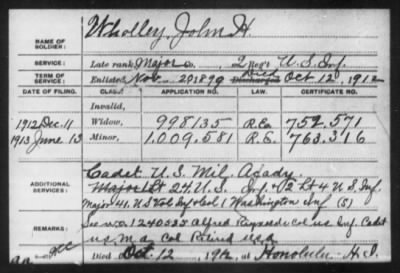 NAME OF SOLDIER: Wholley, John H.
SERVICE: Late rank, Major Co. , 2 Reg't U.S. Inf.
TERM OF SERVICE: Enlisted Nov. 20 1899 Died Oct 12, 1912
DATE OF FILING. CLASS. APPLICATION NO. LAW. CERTIFICATE NO.
Invalid,
1912 Dec. 11 Widow, 998135 R.Co. 752.571
1913 June 13 Minor, 1.009.581 R.S. 763.316
Cadet U.S. Mil. Acady.
ADDITIONAL SERVICES: Major Lt 24 U.S. Inf. + 2 Lt 4 U.S. Inf
Major 41. U.S Vol Inf + Col 1 Washington Inf (S)
REMARKS: See W.O 1240525 Alfred Col US Inf. Cadet
U.S. M.A Col Retired USA
Died Oct. 12, 1912, at Honolulu H.I.